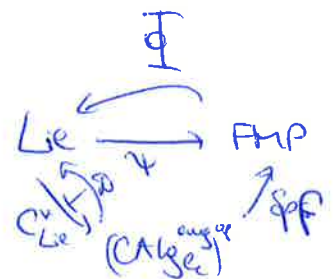 Φ
Lie → FMP
Ψ
C*Lie ⊣ 𝔇 (CAlg^aug)^op Spf